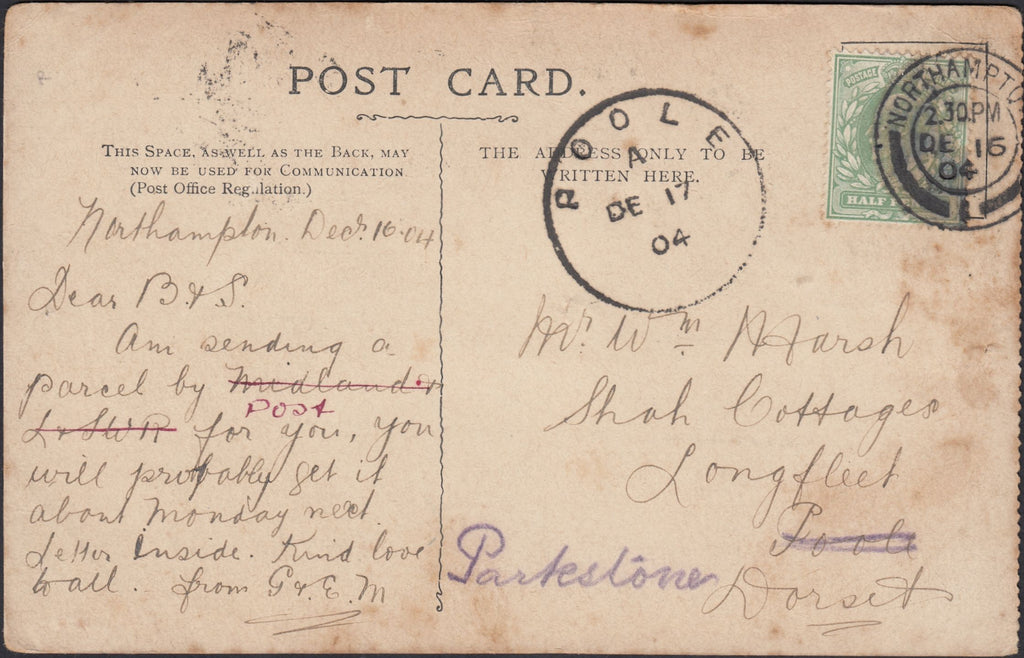 POST CARD.
THIS SPACE, AS WELL AS THE BACK, MAY
NOW BE USED FOR COMMUNICATION
(Post Office Regulation.)
Northampton. Decr. 16-04
Dear B & S.
Am sending a
parcel by Midland &
Post
L & SWR for you, you
will probably get it
about Monday next.
Letter inside. Kind love
to all. from G & E. M
THE ADDRESS ONLY TO BE
WRITTEN HERE.
POOLE
A
DE 17
04
POSTAGE
HALF
NORTHAMPTO
2.30.PM
DE 16
04
Mr. Wm Marsh
Shah Cottages
Longfleet
Poole
Parkstone
Dorset